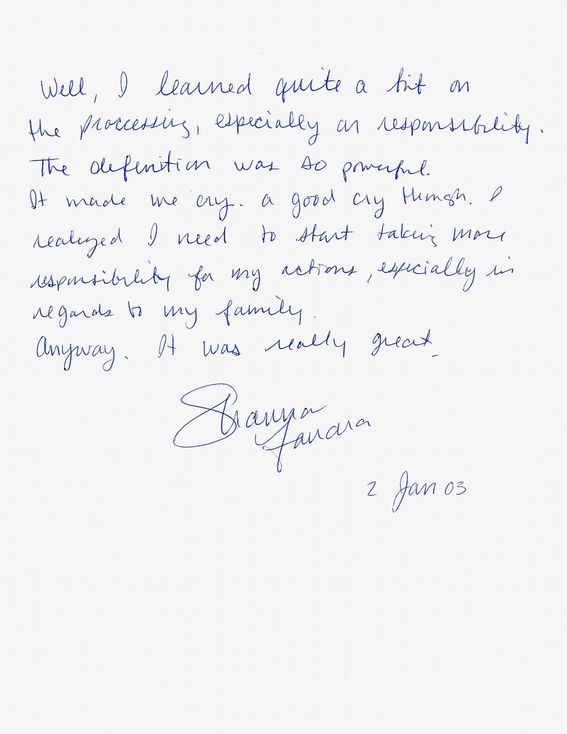 Well, I learned quite a bit on
the processing, especially on responsibility.
The definition was so powerful.
It made me cry. a good cry though. I
realized I need to start taking more
responsibility for my actions, especially in
regards to my family.
Anyway. It was really great.
Shanna
2 Jan 03